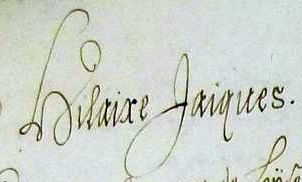 Hilaire Jaiques.